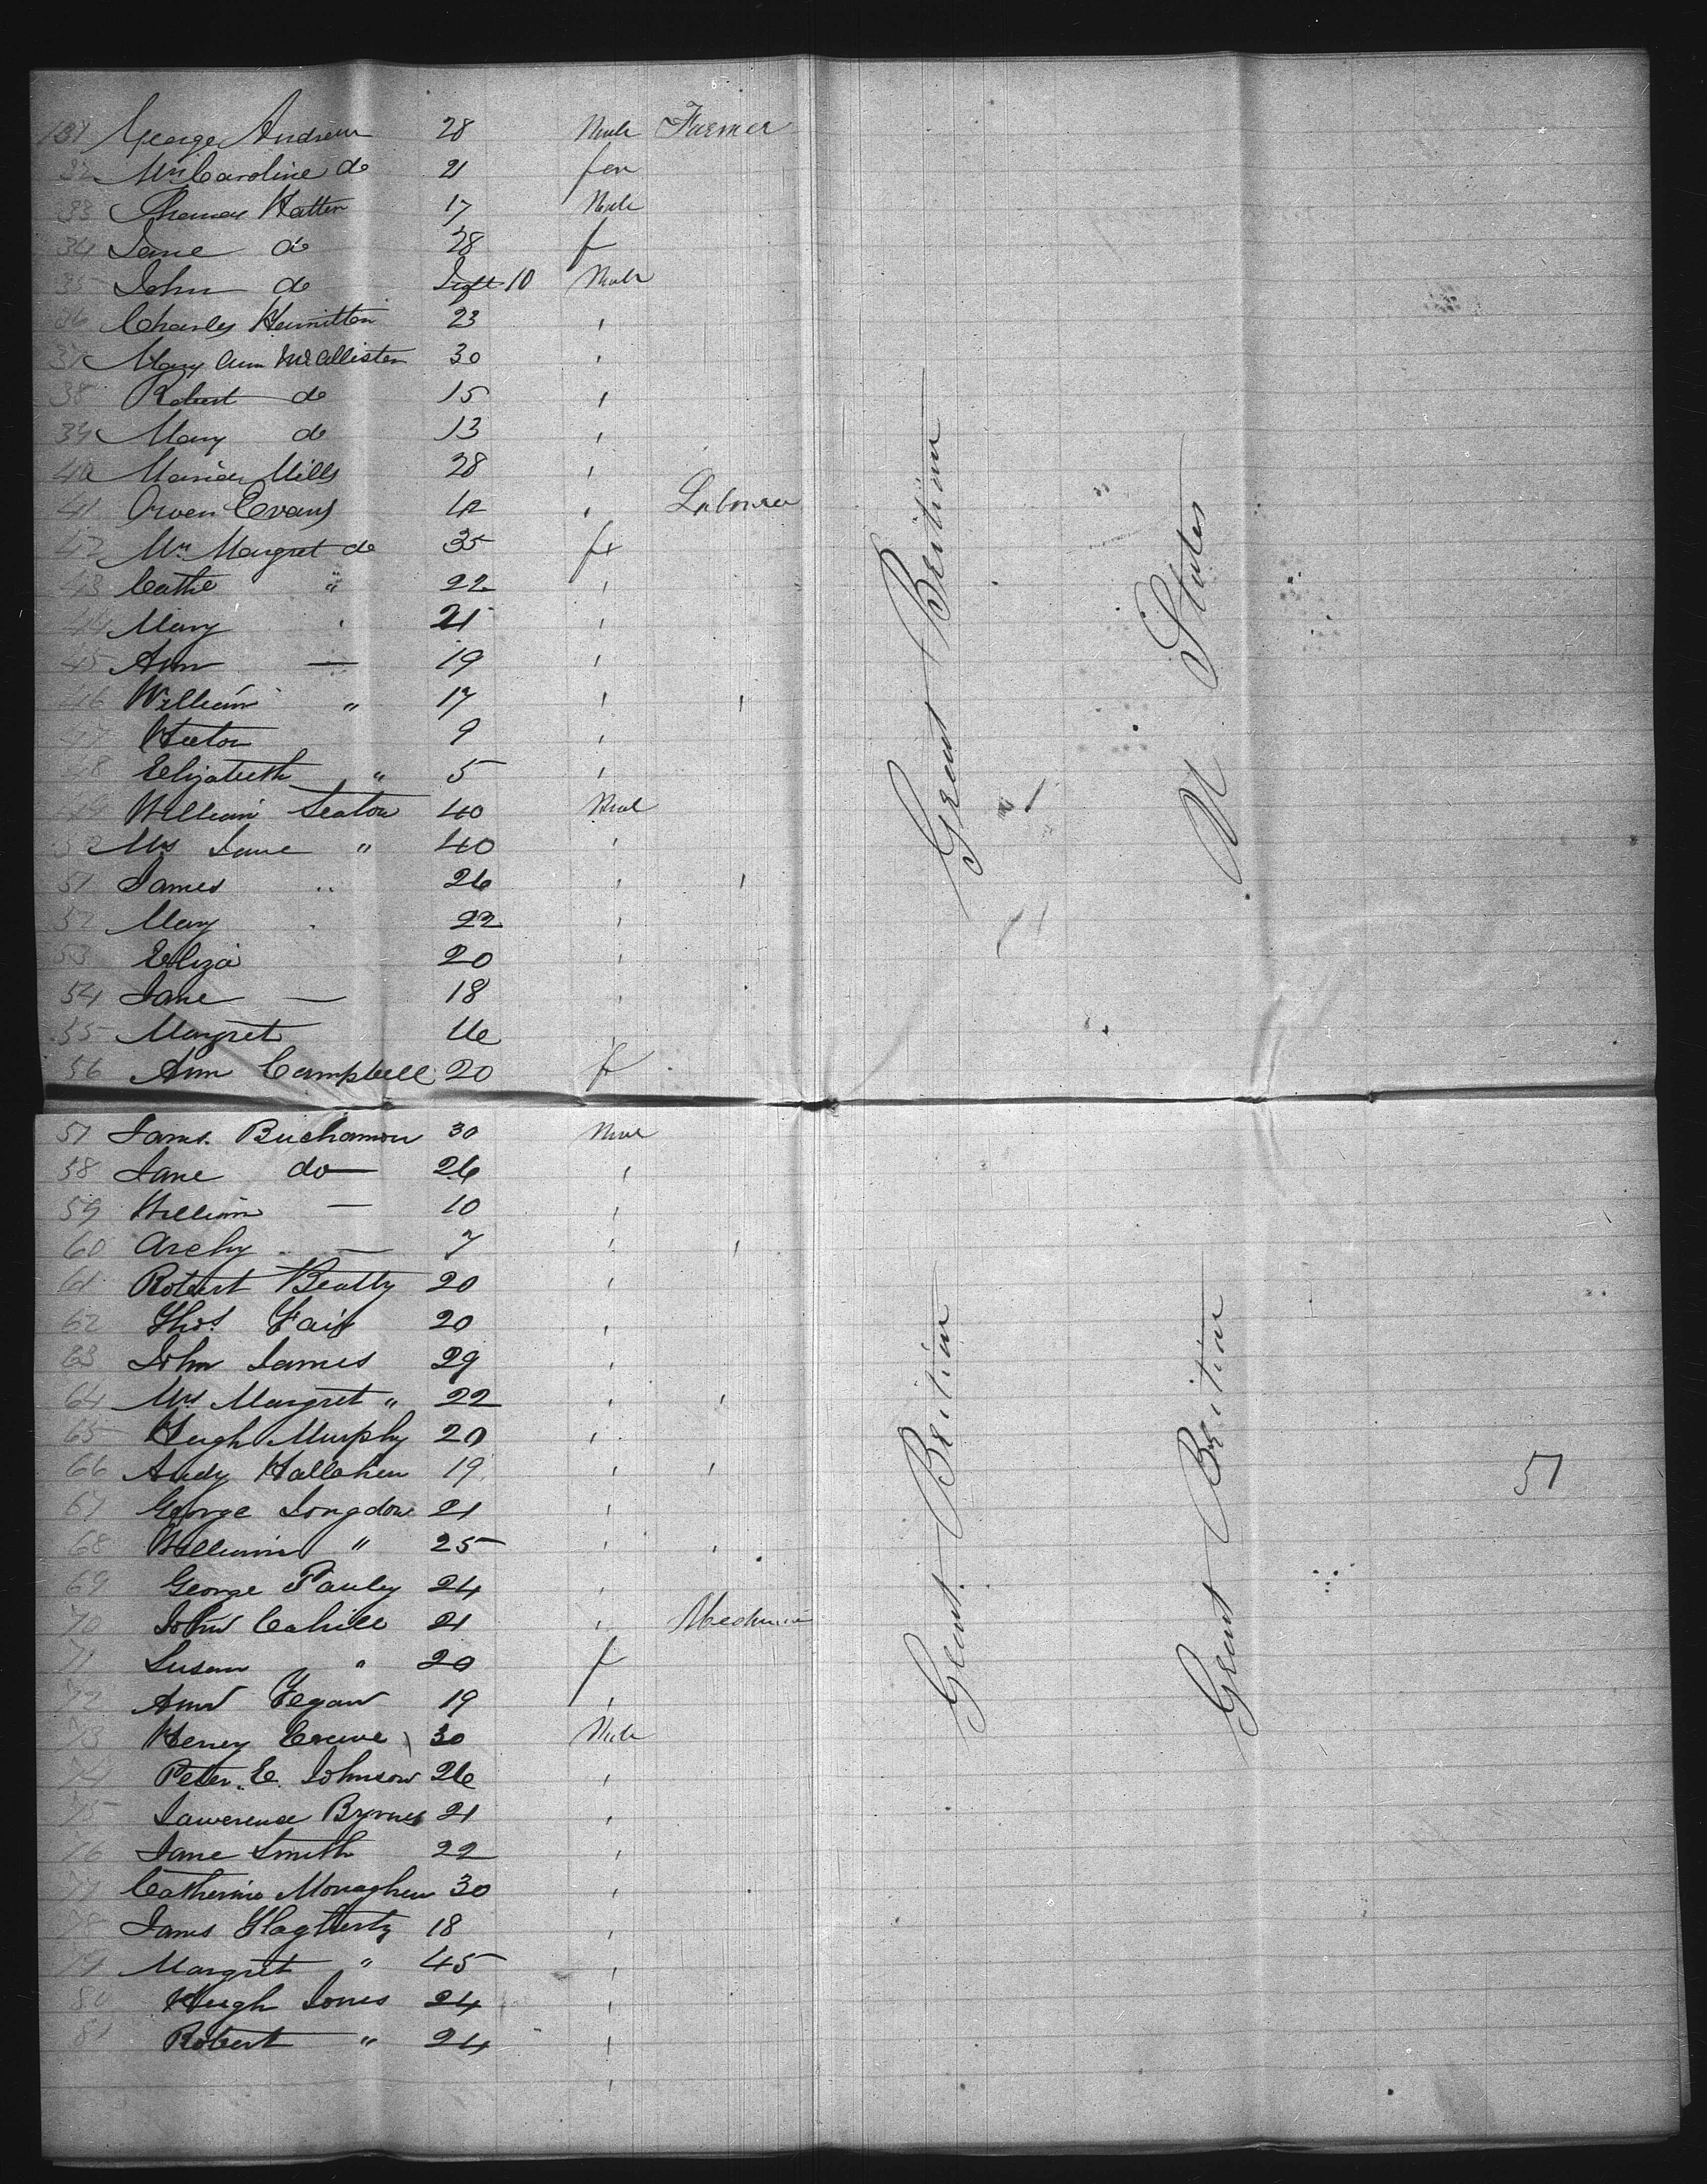 131 George Andrew 28 Male Farmer
32 Mrs Caroline do 21 fem
33 Thomas Hatten 17 Male
34 Jane do 28 f
35 John do Inft 10 Male
36 Charles Hamilton 23 '
37 Mary Ann McAllister 30 '
38 Robert do 15 '
39 Mary do 13 '
40 Maria Mills 28 '
41 Owen Evans 42 ' Labourer
42 Mrs Margret do 35 f
43 Cathe " 22 '
44 Mary ' 21 '
45 Ann — 19 '
46 William " 17 ' '
47 9 '
48 Elizabeth " 5 '
49 William Seaton 40 Male
Mrs Jane " 40 '
51 James " 26 ' '
52 Mary 22 '
53 Eliza 20 '
54 Jane — 18 '
55 Margret 16 '
56 Ann Campbell 20 f
57 James Buchannon 30 Male
58 Jane do — 26 '
59 William — 10 '
60 Archy — 7 ' '
61 Robert Beatty 20 '
62 Thos Fair 20 '
63 John James 29 '
64 Mrs Margret " 22 ' '
65 Hugh Murphy 20 '
66 Andy Hallahen 19 ' '
67 George Longdon 21 '
68 William " 25 ' '
69 George Pauley 24 '
70 John Cahill 21 ' Mechanic
71 Susan " 20 f
72 Ann Fegan 19 '
73 Henry 30 Male
74 Peter E. Johnson 26 '
75 Lawerence Byrnes 21 '
76 Jane Smith 22 '
77 Catherine Monaghen 30 '
78 James Flagherty 18 '
79 Margret " 45 '
80 Hugh Jones 24 '
81 Robert " 24 '
Great Britian
U States
Great Britian
Great Britian
51